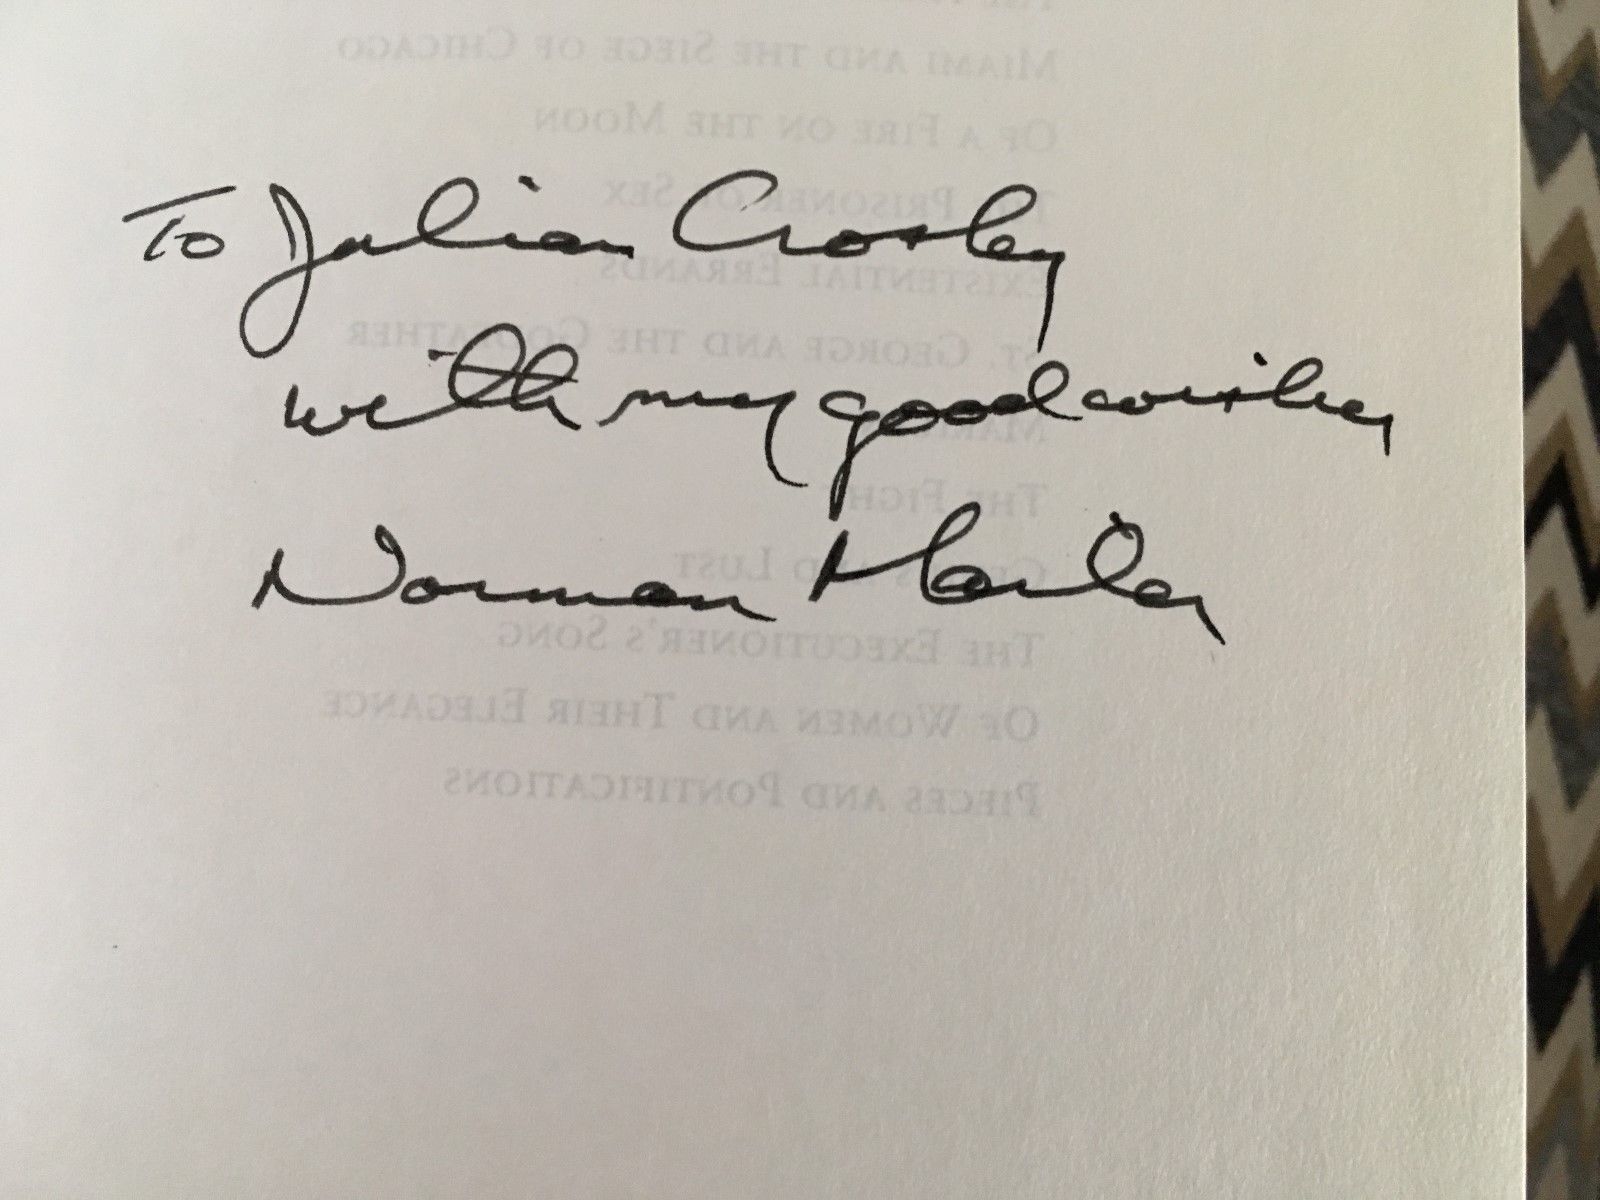 Miami and the Siege of Chicago
Of a Fire on the Moon
The Prisoner of Sex
To Julian Crosley
Existential Errands
St. George and the Godfather
with my good wishes
The Fight
Norman Mailer
and Lust
The Executioner's Song
Of Women and Their Elegance
Pieces and Pontifications